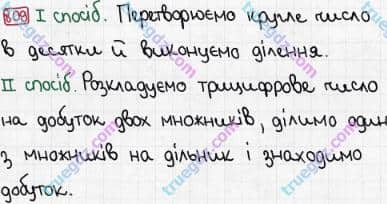 809 I спосіб. Перетворюємо кругле число
в десятки й виконуємо ділення.
II спосіб. Розкладуємо трицифрове число
на добуток двох множників, ділимо один
з множників на дільник і знаходимо
добуток.